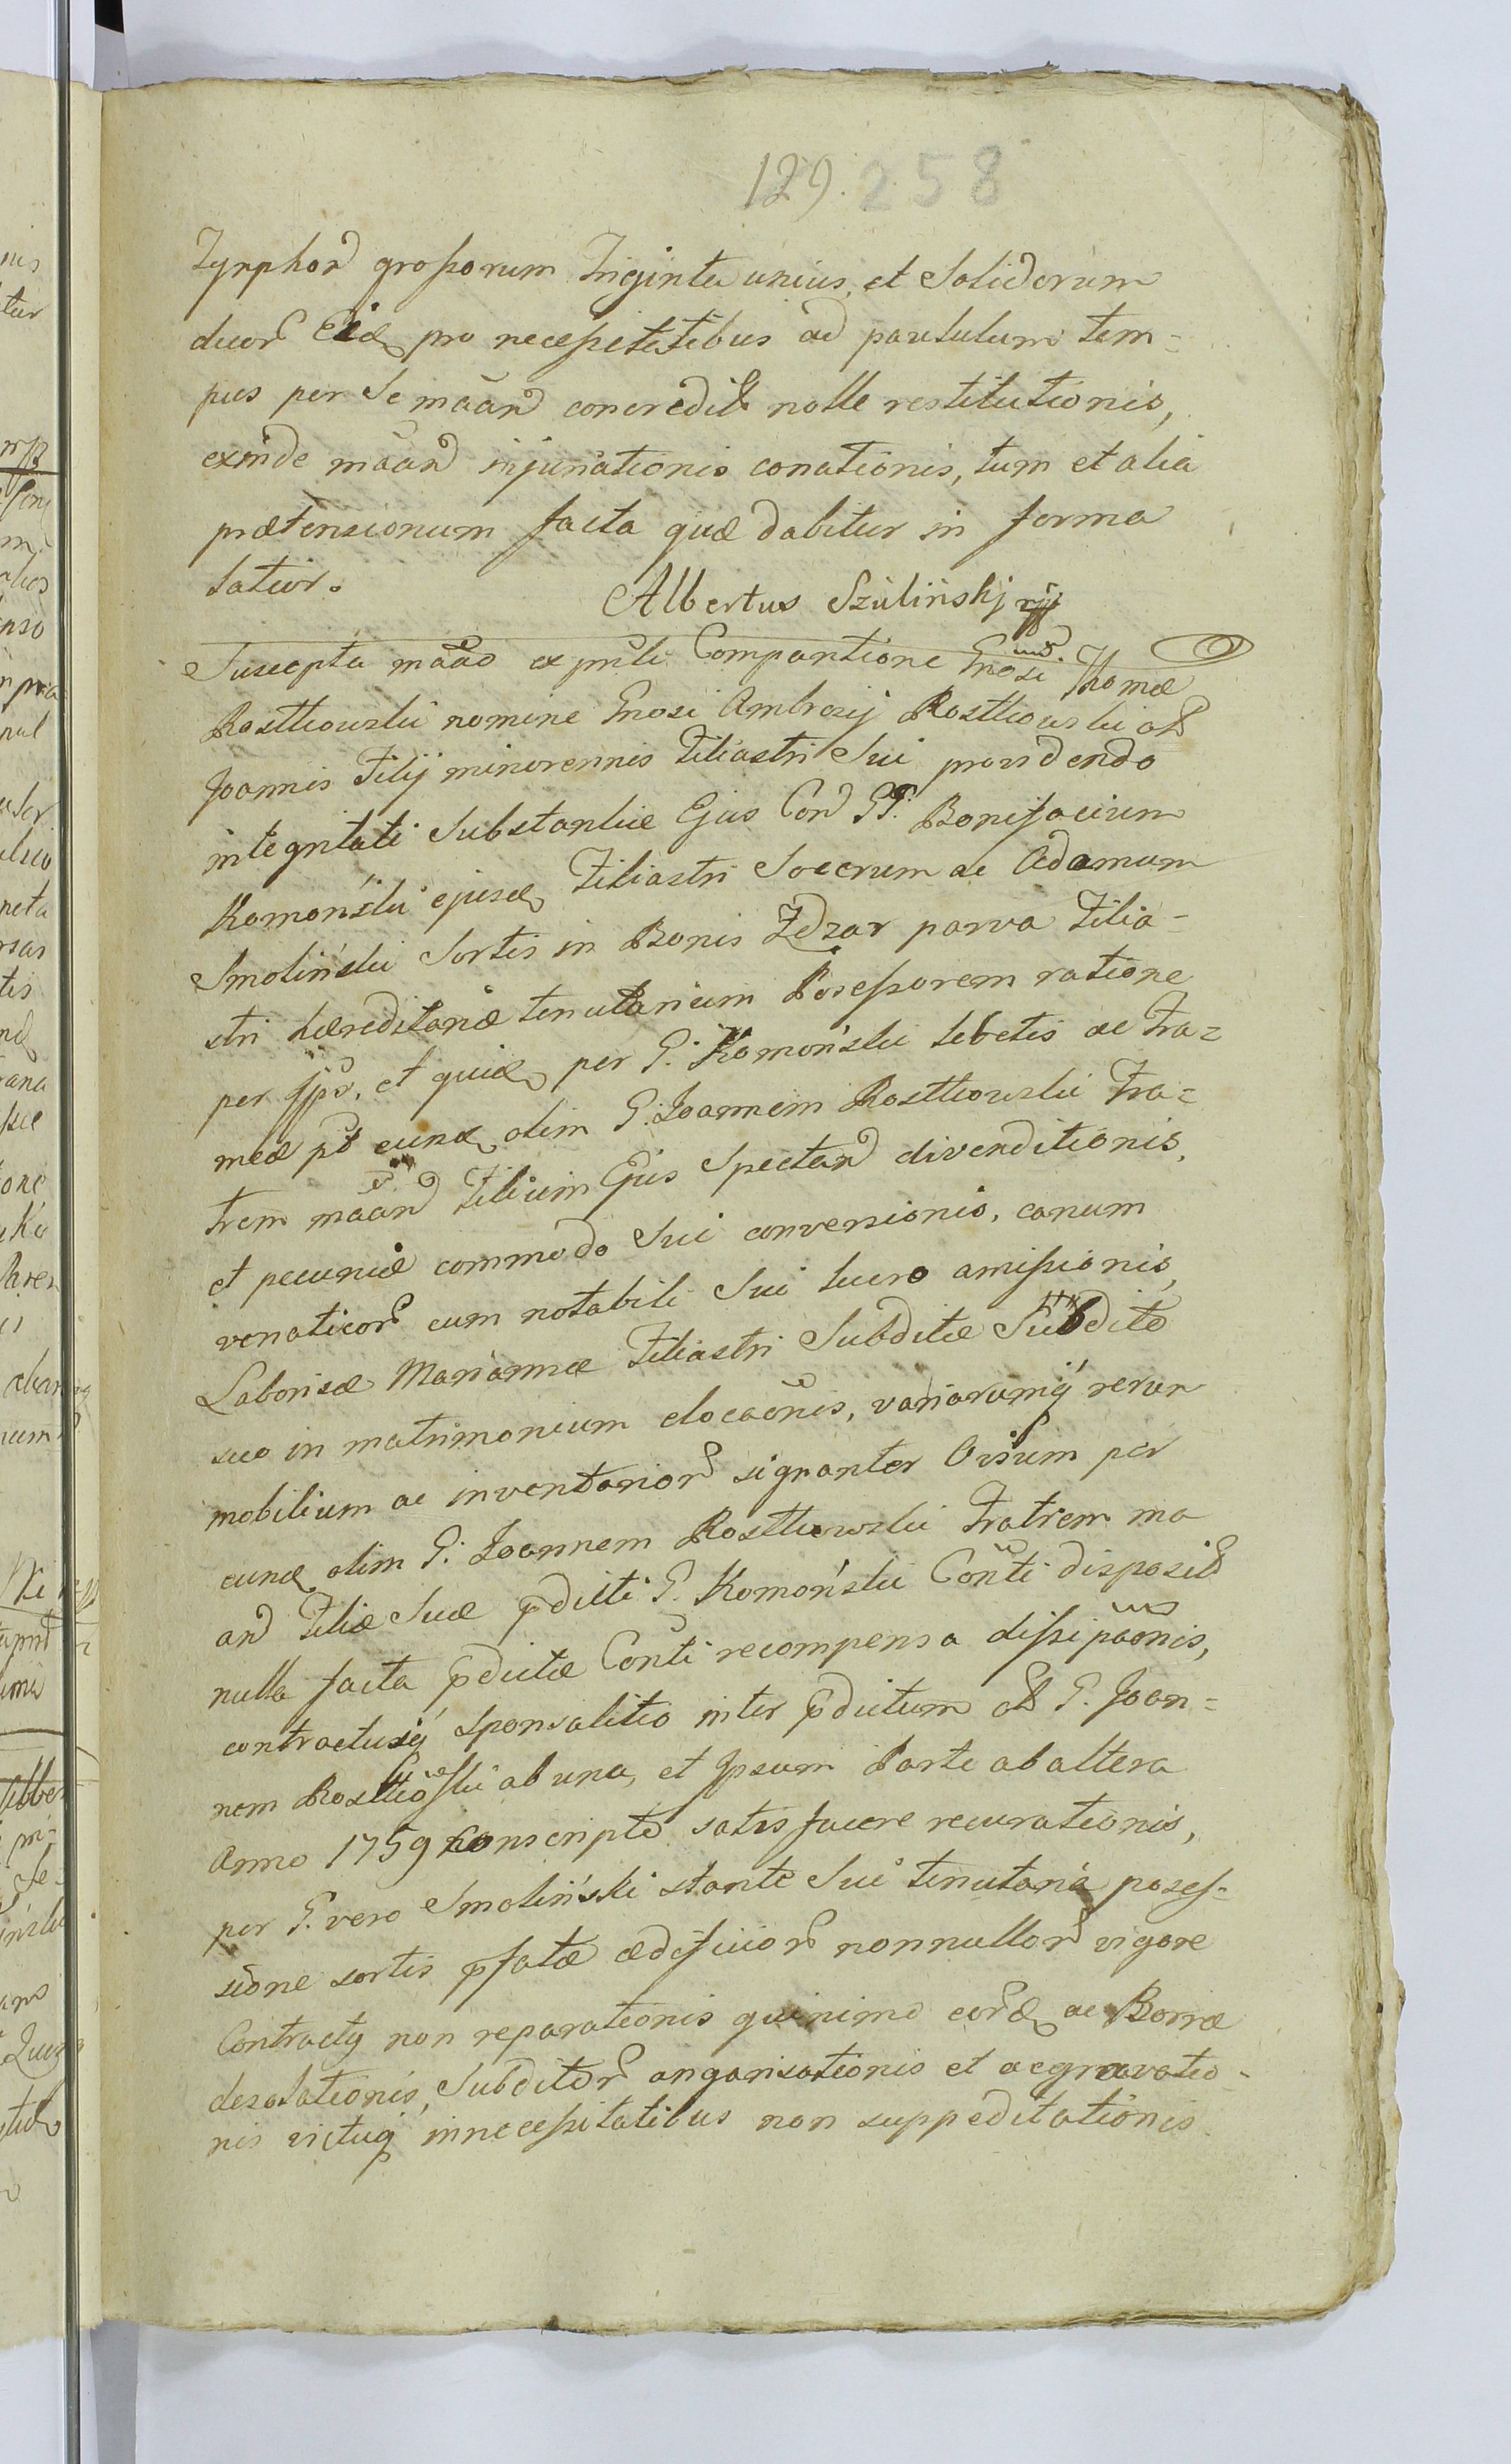 129. 258
Tynphor groszorum Triginta unius, et Solidorum
duor Eid pro necessitatibus ad paululum tem=
pus per Se māan concredit nolle restitutionis,
exinde māan injuriationis conationis, tum et alia
prætensionum facta quæ dabitur in forma
latior.
Albertus Szuliński
Suscepta māao ex pnti Compartione Gnosi Thomæ
Rostkowski nomine Gnosi Ambrosij Rostkowski olim
Joannis Filij minorennis Filiastri Sui providendo
integritati Substantiæ Ejus Con GG. Bonifacium
Komoński ejusd Filiastri Socerum ac Adamum
Smoliński Sortis in Bonis Zdzar parva Filia=
stri hæreditariæ tenutarium Possessorem ratione
per Ipso, et quid per G. Komoński lebetis ac Fra=
meæ pt eund olim G. Joannem Rostkowski Fra=
trem māan Filium Ejus Spectan divenditionis,
et pecuniæ commodo Sui conversionis, canum
venaticor cum notabili Sui lucro amissionis,
Laborisæ Mariannæ Filiastri Subditæ Subdito
suo in matrimonium elocaonis, variarumq rerum
mobilium ac inventarior signanter Ovium per
eund olim G. Joannem Rostkowski Fratrem ma
an Filiæ Suæ pdicti G. Komoński Conti disposit
nulla facta pdictæ Conti recompensa dissipaonis,
contractusq sponsalitio inter pdictum olim G. Joan=
nem Rostkowski ab una, et Ipsum Parte ab altera
Anno 1759 conscripto satisfacere recusationis,
per G. vero Smoliński stante Sui tenutaria poses=
sione sortis pfatæ ædificior nonnullor vigore
Contractq non reparationis quinimo eord ac Borræ
desolationis, Subditor angarisationis et aegravatio=
nis victuq in necessitatibus non suppeditationis